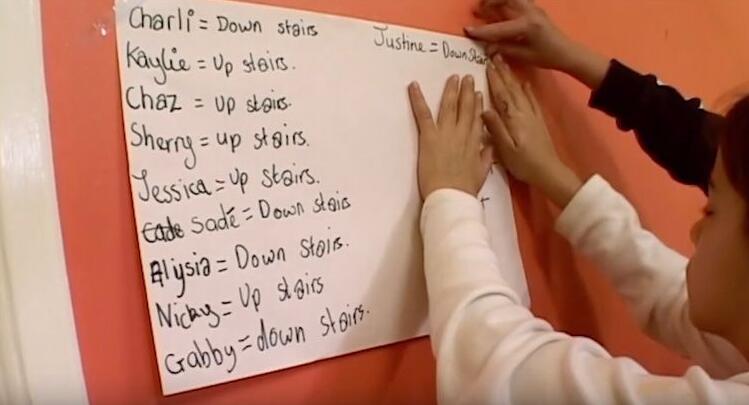 Charli = Down stairs
Justine = Down Stair
Kaylie = Up stairs.
Chaz = Up stairs.
Sherry = up stairs.
Jessica = Up Stairs.
Sadé = Down stairs
Alysia = Down Stairs.
Nicky = Up stairs
Gabby = down stairs.